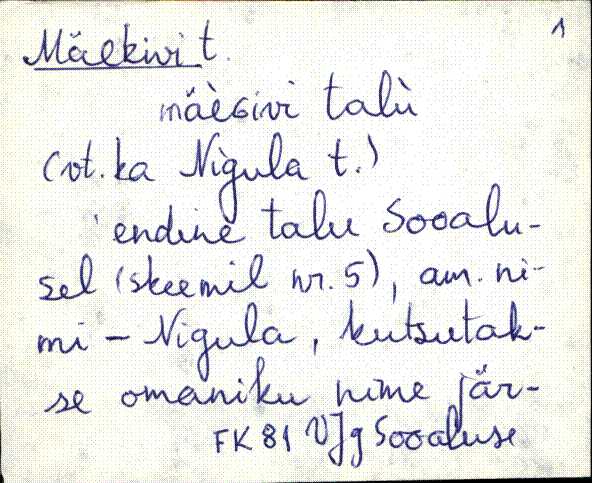 1
Mäekivi t.
mäèGivi talù
(vt. ka Nigula t.)
endine talu Sooalu-
sel (skeemil nr. 5), am. ni-
mi - Nigula, kutsutak-
se omaniku nime jär-
FK 81 VJg Sooaluse